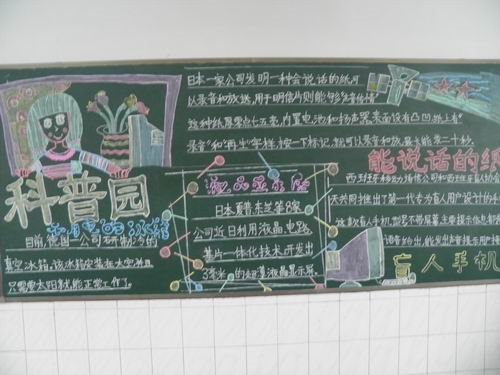 日本一家公司发明一种会说话的纸,可
以录音和放送,用于明信片则能够"声音传情"
这种纸厚零点七五毫,内置电池和扬声器,表面设有凸凹,纸上有
录音"和"再生"字样,按一下标记,就可以录音和放,最大能录二十秒。
能说话的纸
科普园
不用电的冰箱
目前,德国一公司研制分的
真空冰箱,该冰箱安装在太空并且
只需要太阳就能正常工作了。
液晶显示屏
日本夏普东芝等8家
公司近日利用液晶,电路,
基片一体化技术开发出
3毫米的超薄液晶显示屏。
西班牙移动通信公司和西班牙盲人协会
天共同推出了第一代专为盲人用设计的手
这款盲人手机,型号不带屏幕,主要提示依
盲人手机